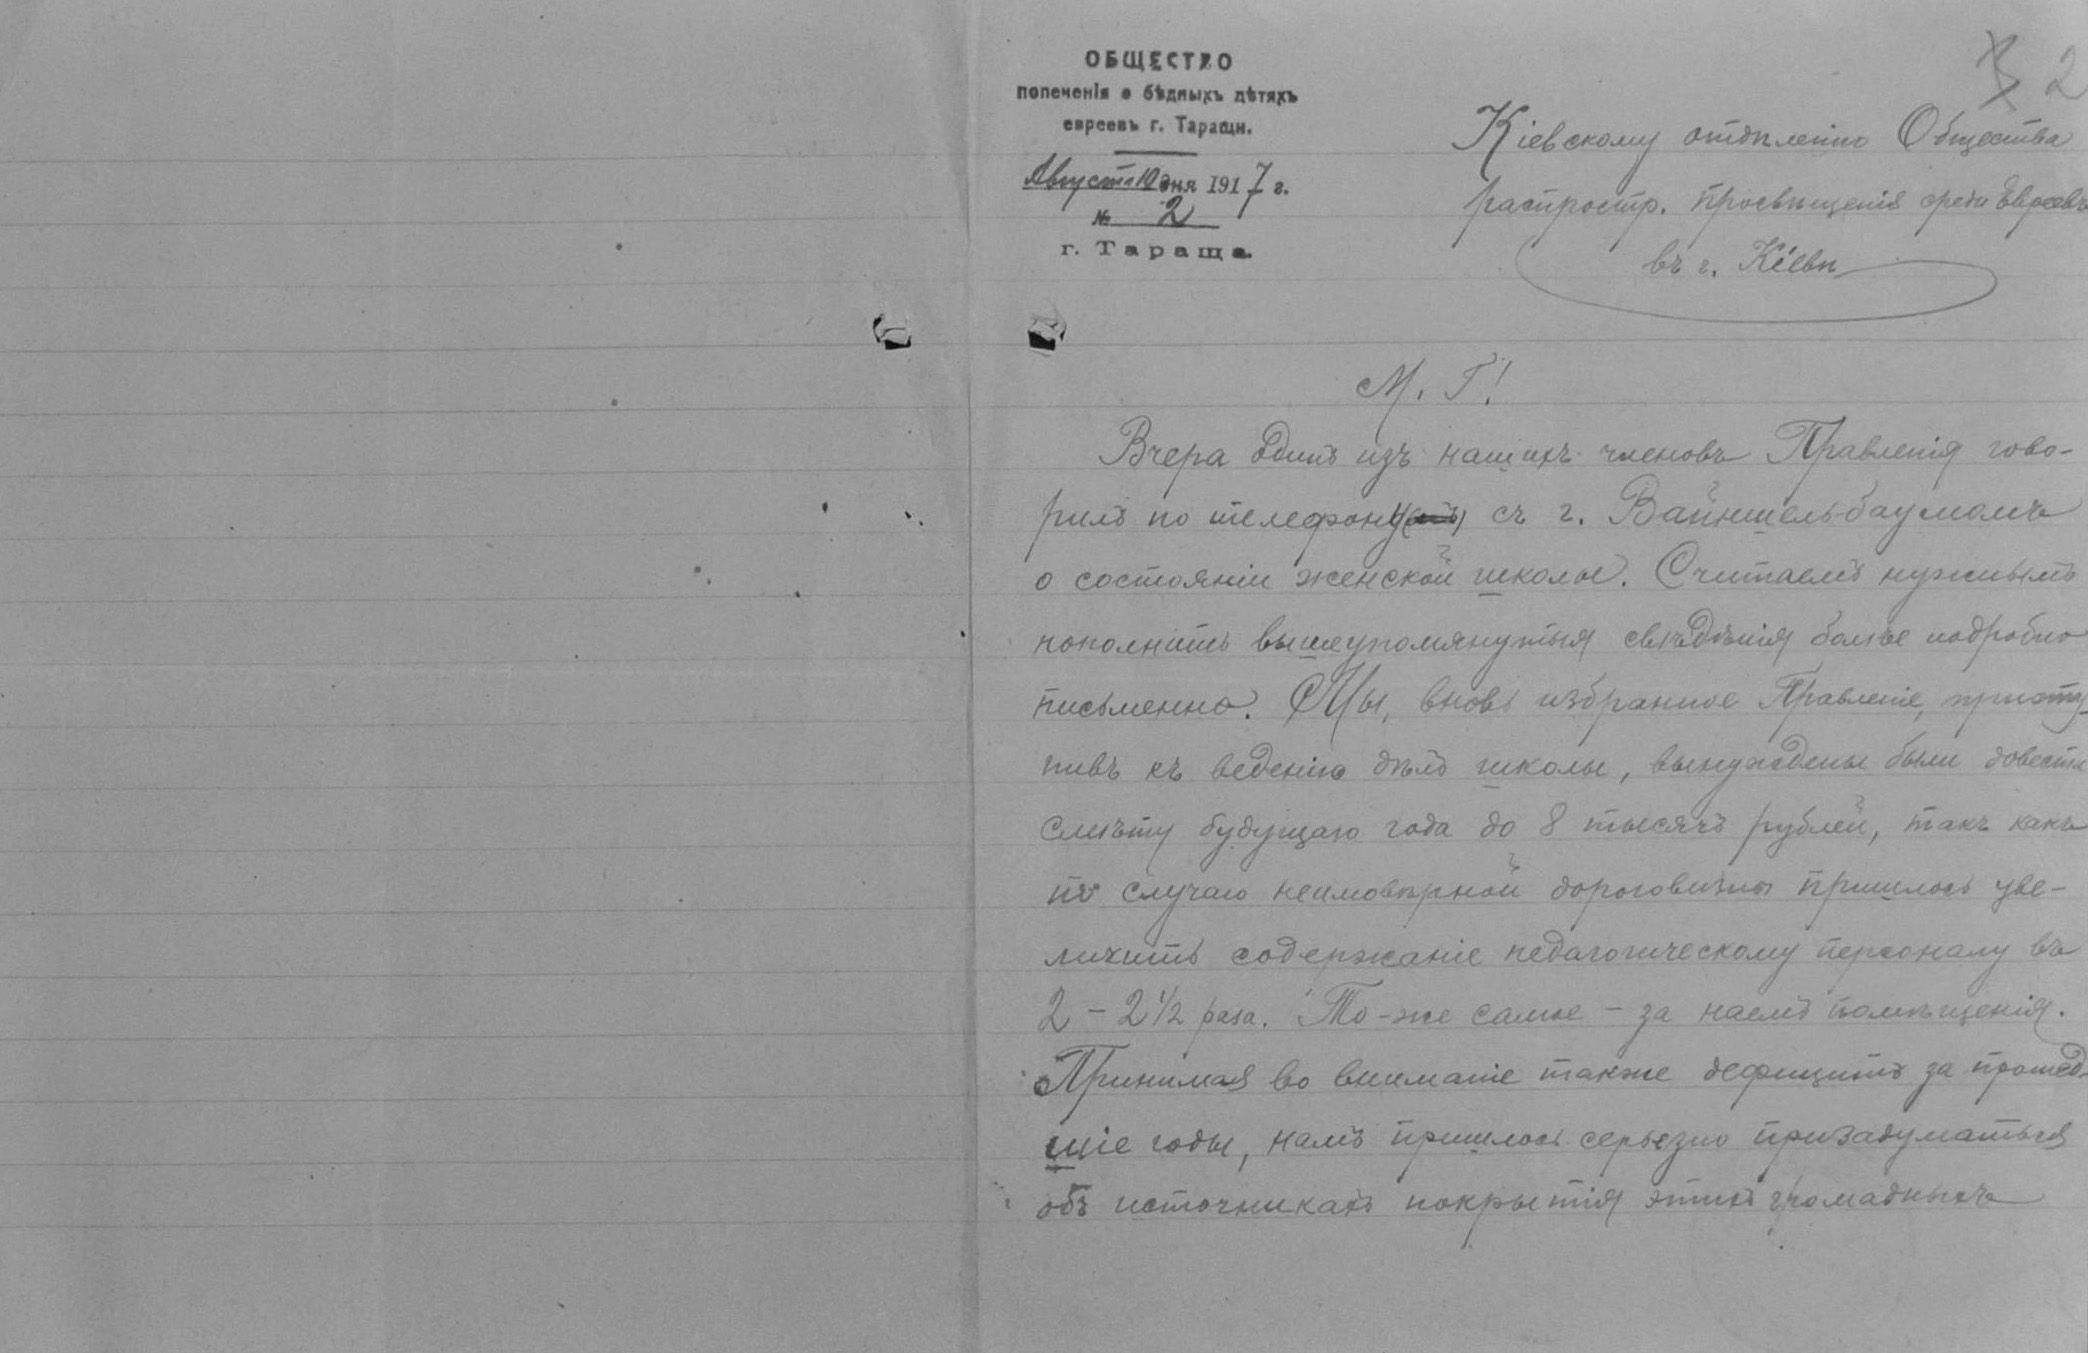 ОБЩЕСТВО
попеченія о бѣдныхъ дѣтяхъ
евреевъ г. Таращи.
Августа 10 дня 1917 г.
№ 2
г. Тараща.
2
Кіевскому отдѣленію Общества
распростр. просвѣщенія среди Евреевъ
въ г. Кіевѣ
М. Г!
Вчера одинъ изъ нашихъ членовъ Правленія гово-
рилъ по телефону съ г. Вайнштельбаумомъ
о состояніи женской школы. Считаемъ нужнымъ
пополнить вышеупомянутыя свѣдѣнія болѣе подробно
письменно. Мы, вновь избранное Правленіе, присту-
пивъ къ веденію дѣлъ школы, вынуждены были довести
смѣту будущаго года до 8 тысячъ рублей, такъ какъ
по случаю неимовѣрной дороговизны пришлось уве-
личить содержаніе педагогическому персоналу въ
2 – 2 1/2 раза. То-же самое – за наемъ помѣщенія.
Принимая во вниманіе также дефицитъ за прошед-
шіе годы, намъ пришлось серьезно призадуматься
объ источникахъ покрытія этихъ громадныхъ